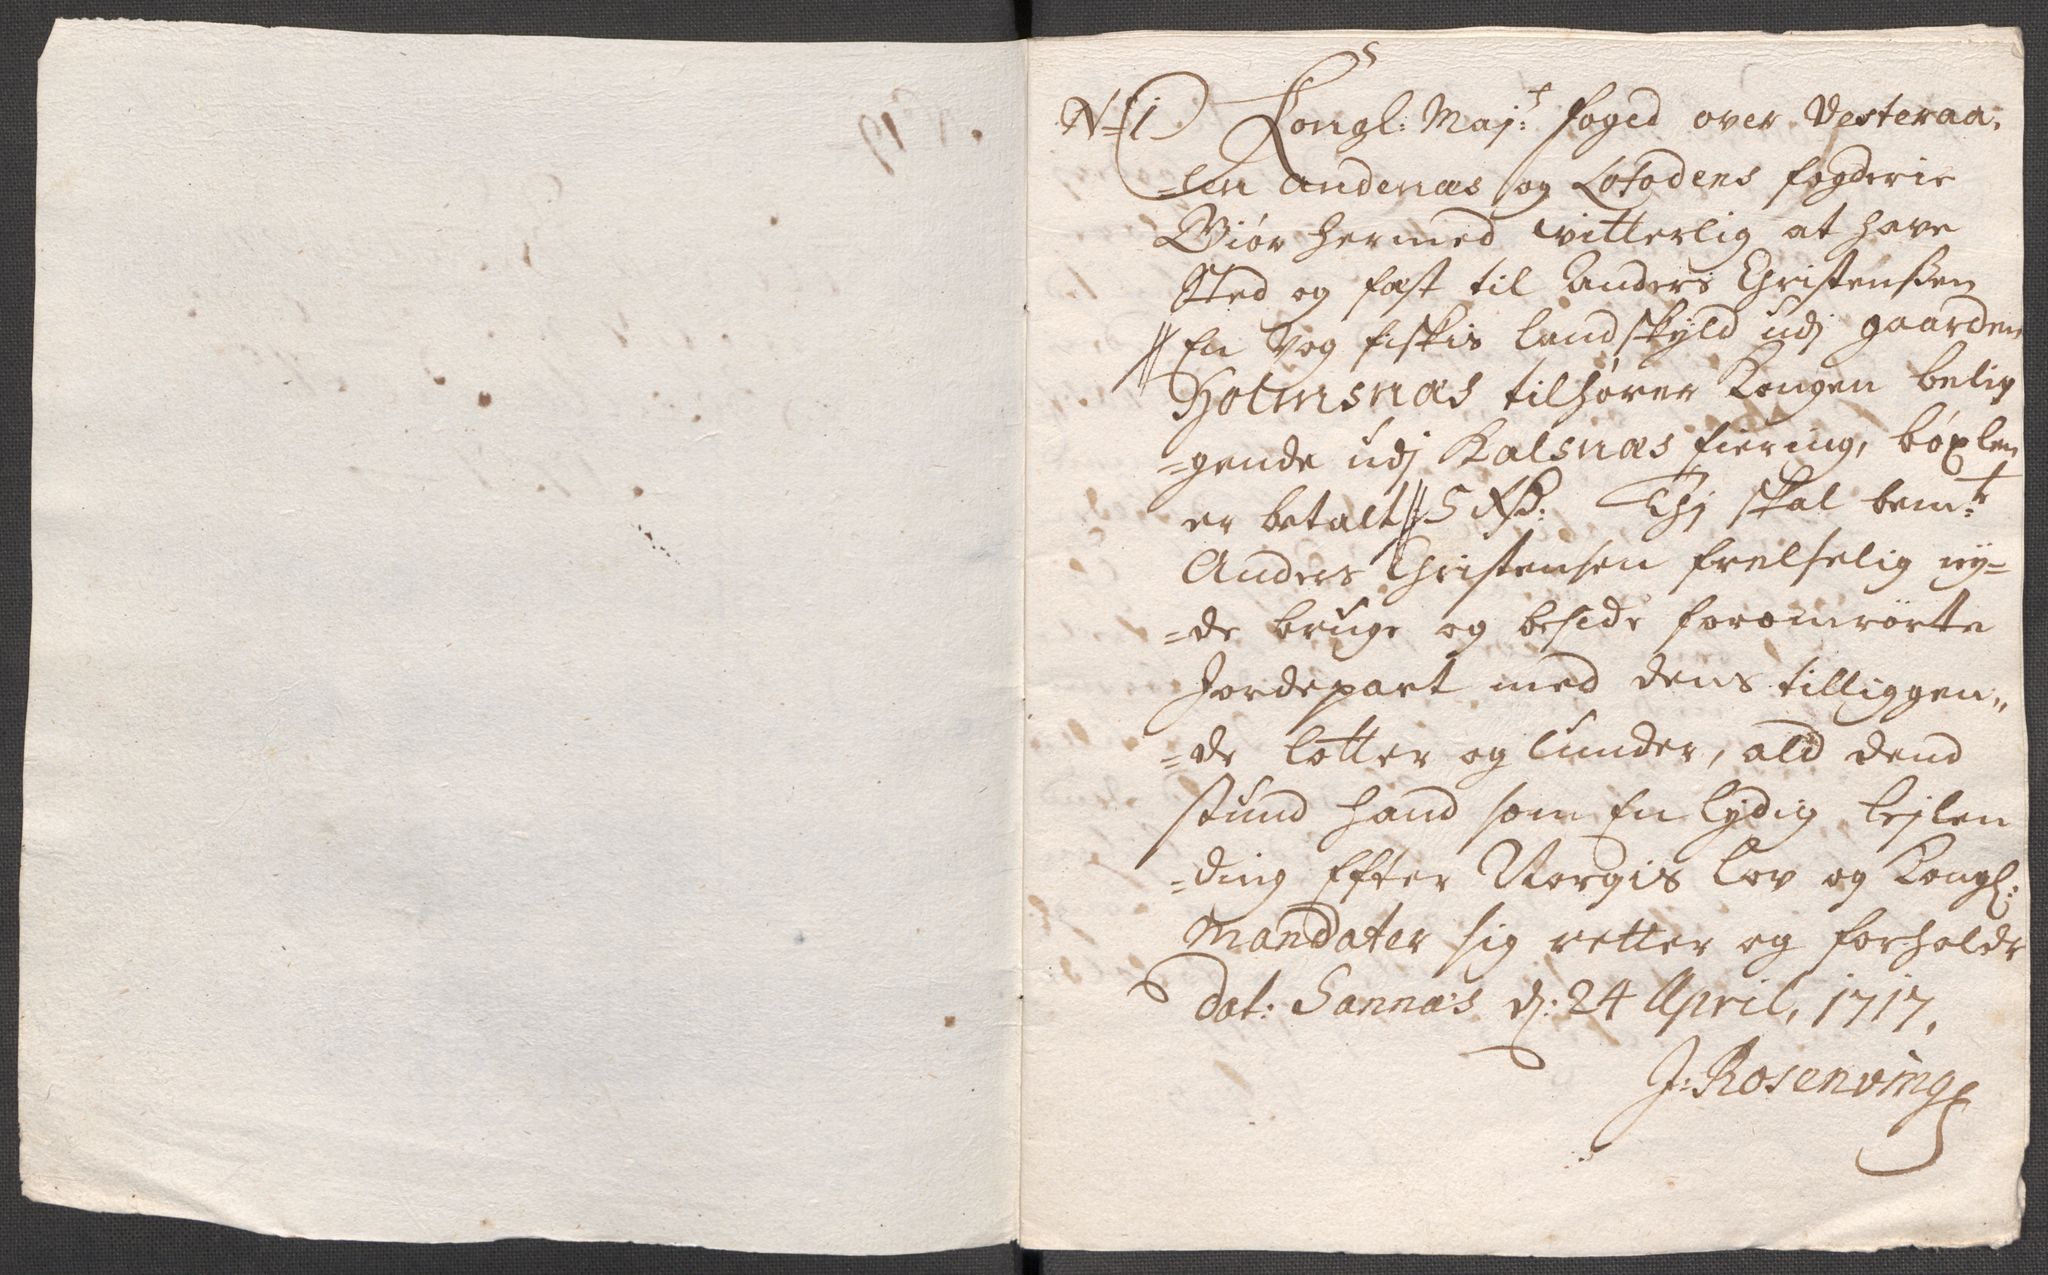 N: 1
Kongl: Maj:t foged over Vesteraa,
=len Andenæs og Lofodens fogderie
Giør hermed vitterlig at have
Sted og fæst til Anders Christenßen
// En Vog fiskis landskyld udj gaarden
Holmsnæs tilhører Kongen belig
=gende udj Kalsnæs fiering, böxlen
er betalt // 5 Rd: Thj skal bem:te
Anders Christensen frelselig ny=
=de bruge og beside foromrörte
Jordepart med dens tilliggen,,
=de lotter og lunder, ald dend
stund hand som En lydig lejlen
=ding Efter Norgis lov og Kongl:
Mandater sig retter og forholdr
Dat: Sannæs d: 24 April, 1717.
J: Rosenvinge